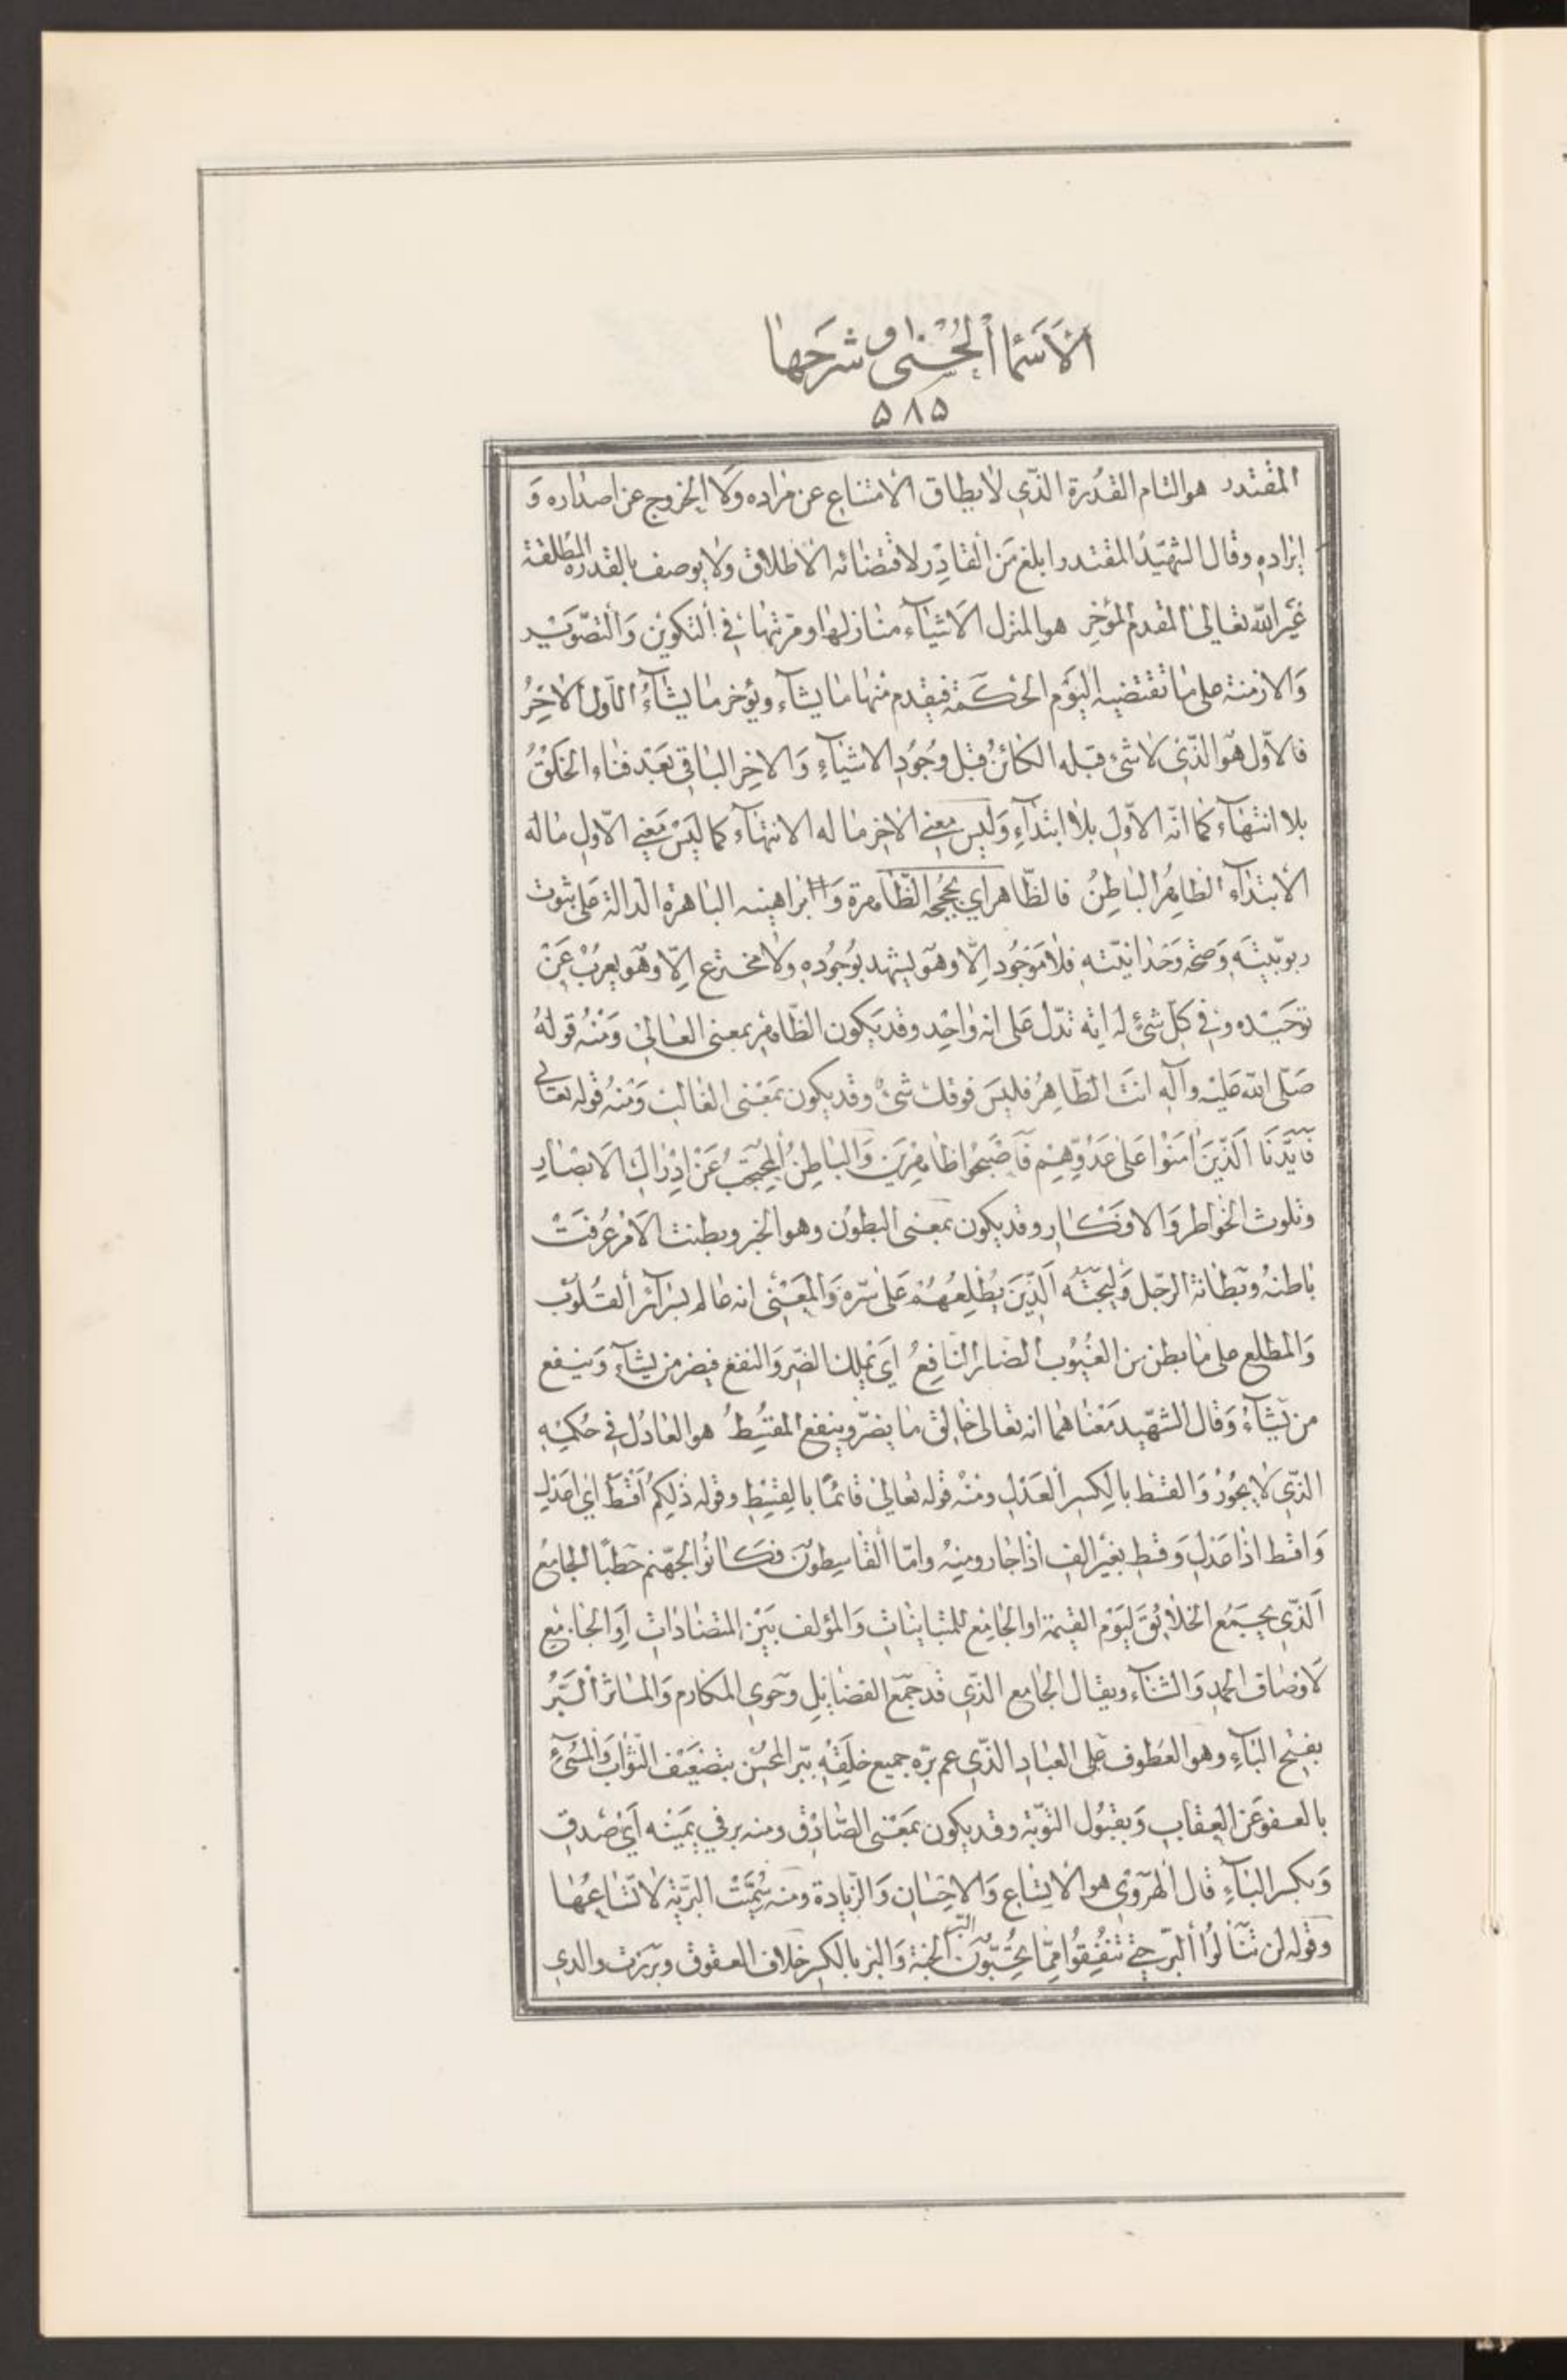 الأسماء الحسنى وشرحها
۵۸۵
المقتدر هو التام القدرة الذي لا يطاق الامتناع عن مراده ولا الخروج عن اصداره و
ايراده وقال الشهيد المقتدر ابلغ من القادر لاقتضائه الاطلاق ولا يوصف بالقدرة المطلقة
غير الله تعالى المقدم المؤخر هو المنزل الاشياء منازلها ومرتبها في التكوين والتصوير
والازمنة على ما تقتضيه اليوم الحكمة فيقدم منها ما يشاء ويؤخر ما يشاء الاول الاخر
فالاول هو الذي لا شيء قبله الكائن قبل وجود الاشياء والاخر الباقي بعد فناء الخلق
بلا انتهاء كما انه الاول بلا ابتداء وليس معنى الاخر ما له الانتهاء كما ليس معنى الاول ما له
الابتداء الظاهر الباطن فالظاهر اي بحججه الظاهرة وابراهينه الباهرة الدالة على ثبوت
ربوبيته وصحة وحدانيته فلا موجود الا وهو يشهد بوجوده ولا مخترع الا وهو يعرب عن
توحيده وفي كل شيء له اية تدل على انه واحد وقد يكون الظاهر بمعنى العالي ومنه قوله
صلى الله عليه وآله انت الظاهر فليس فوقك شيء وقد يكون بمعنى الغالب ومنه قوله تعالى
فايدنا الذين امنوا على عدوهم فاصبحوا ظاهرين والباطن المحتجب عن ادراك الابصار
وتلوث الخواطر والافكار وقد يكون بمعنى البطون وهو الخبر وبطنت الامر عرفت
باطنه وبطانة الرجل وليجته الذين يطلعهم على سره والمعنى انه عالم بسرائر القلوب
والمطلع على ما بطن من الغيوب الضار النافع اي يملك الضر والنفع فيضر من يشاء وينفع
من يشاء وقال الشهيد معناهما انه تعالى خالق ما يضر وينفع المقسط هو العادل في حكمه
الذي لا يجور والقسط بالكسر العدل ومنه قوله تعالى قائما بالقسط وقوله ذلكم اقسط اي اعدل
واقسط اذا عدل وقسط بغير الف اذا جار ومنه واما القاسطون فكانوا لجهنم حطبا الجامع
الذي يجمع الخلايق ليوم القيمة او الجامع للمتباينات والمؤلف بين المتضادات او الجامع
لاوصاف الحمد والثناء ويقال الجامع الذي قد جمع الفضايل وحوى المكارم والماثر البر
بفتح الباء وهو العطوف على العباد الذي عم بره جميع خلقه ببر المحسن بتضعيف الثواب والمسيء
بالعفو عن العقاب وبقبول التوبة وقد يكون بمعنى الصادق ومنه بر في يمينه اي صدق
وبكسر الباء قال الهروي هو الاتساع والاحسان والزيادة ومنه سميت البرية لاتساعها
وقوله لن تنالوا البر حتى تنفقوا مما تحبون البر الجنة والبر بالكسر خلاف العقوق وبررت والدي